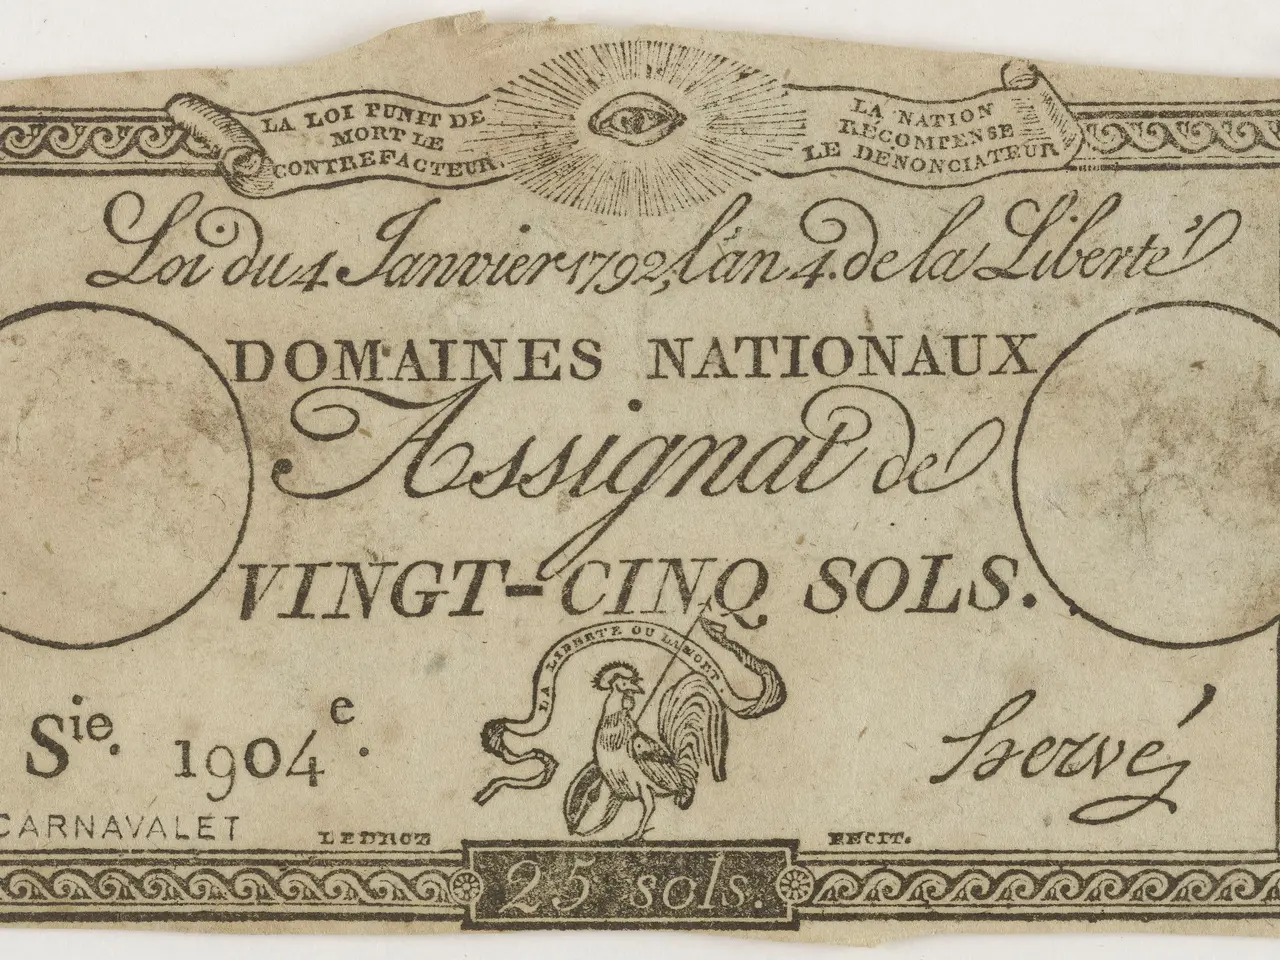 LA LOI PUNIT DE
MORT LE
CONTREFACTEUR.
LA NATION
RÉCOMPENSE
LE DENONCIATEUR
Loi du 4 Janvier 1792, l'an 4. de la Liberté
DOMAINES NATIONAUX
Assignat de
VINGT-CINQ SOLS.
LA LIBERTÉ OU LA MORT.
Sie. 1904e.
Hervé
CARNAVALET
FECIT.
25 sols.